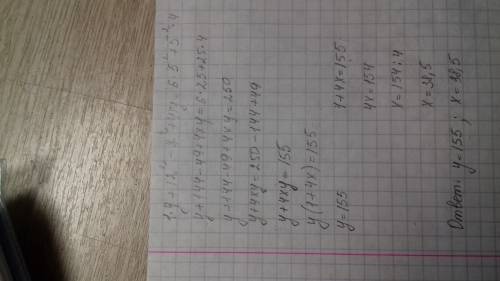 y+12² - 7²+4xy=6·5²+5²·4
y+144-49+4xy=6·25+25·4
y+144-49+4xy=250
y+4xy=250-144+49
y+4xy=155
y(1+4x)=155
y=155
1+4x=155
4x=154
x=154:4
x=38,5
Ответ: y=155; x=38,5